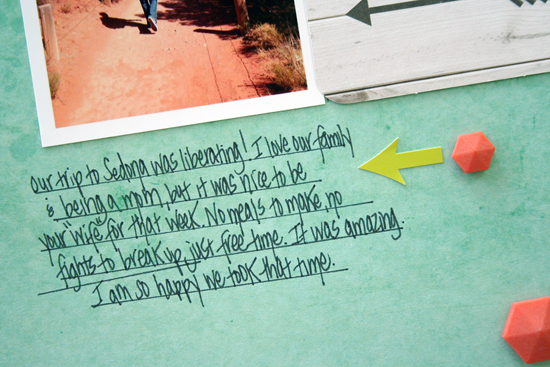 our trip to Sedona was liberating! I love our family
& being a mom, but it was nice to be
your "wife" for that week. No meals to make, no
fights to break up, just free time. It was amazing.
I am so happy we took that time.